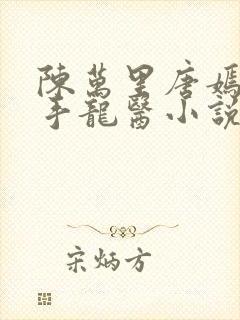 陳萬里唐嫣
手龍醫小說
宋炳方